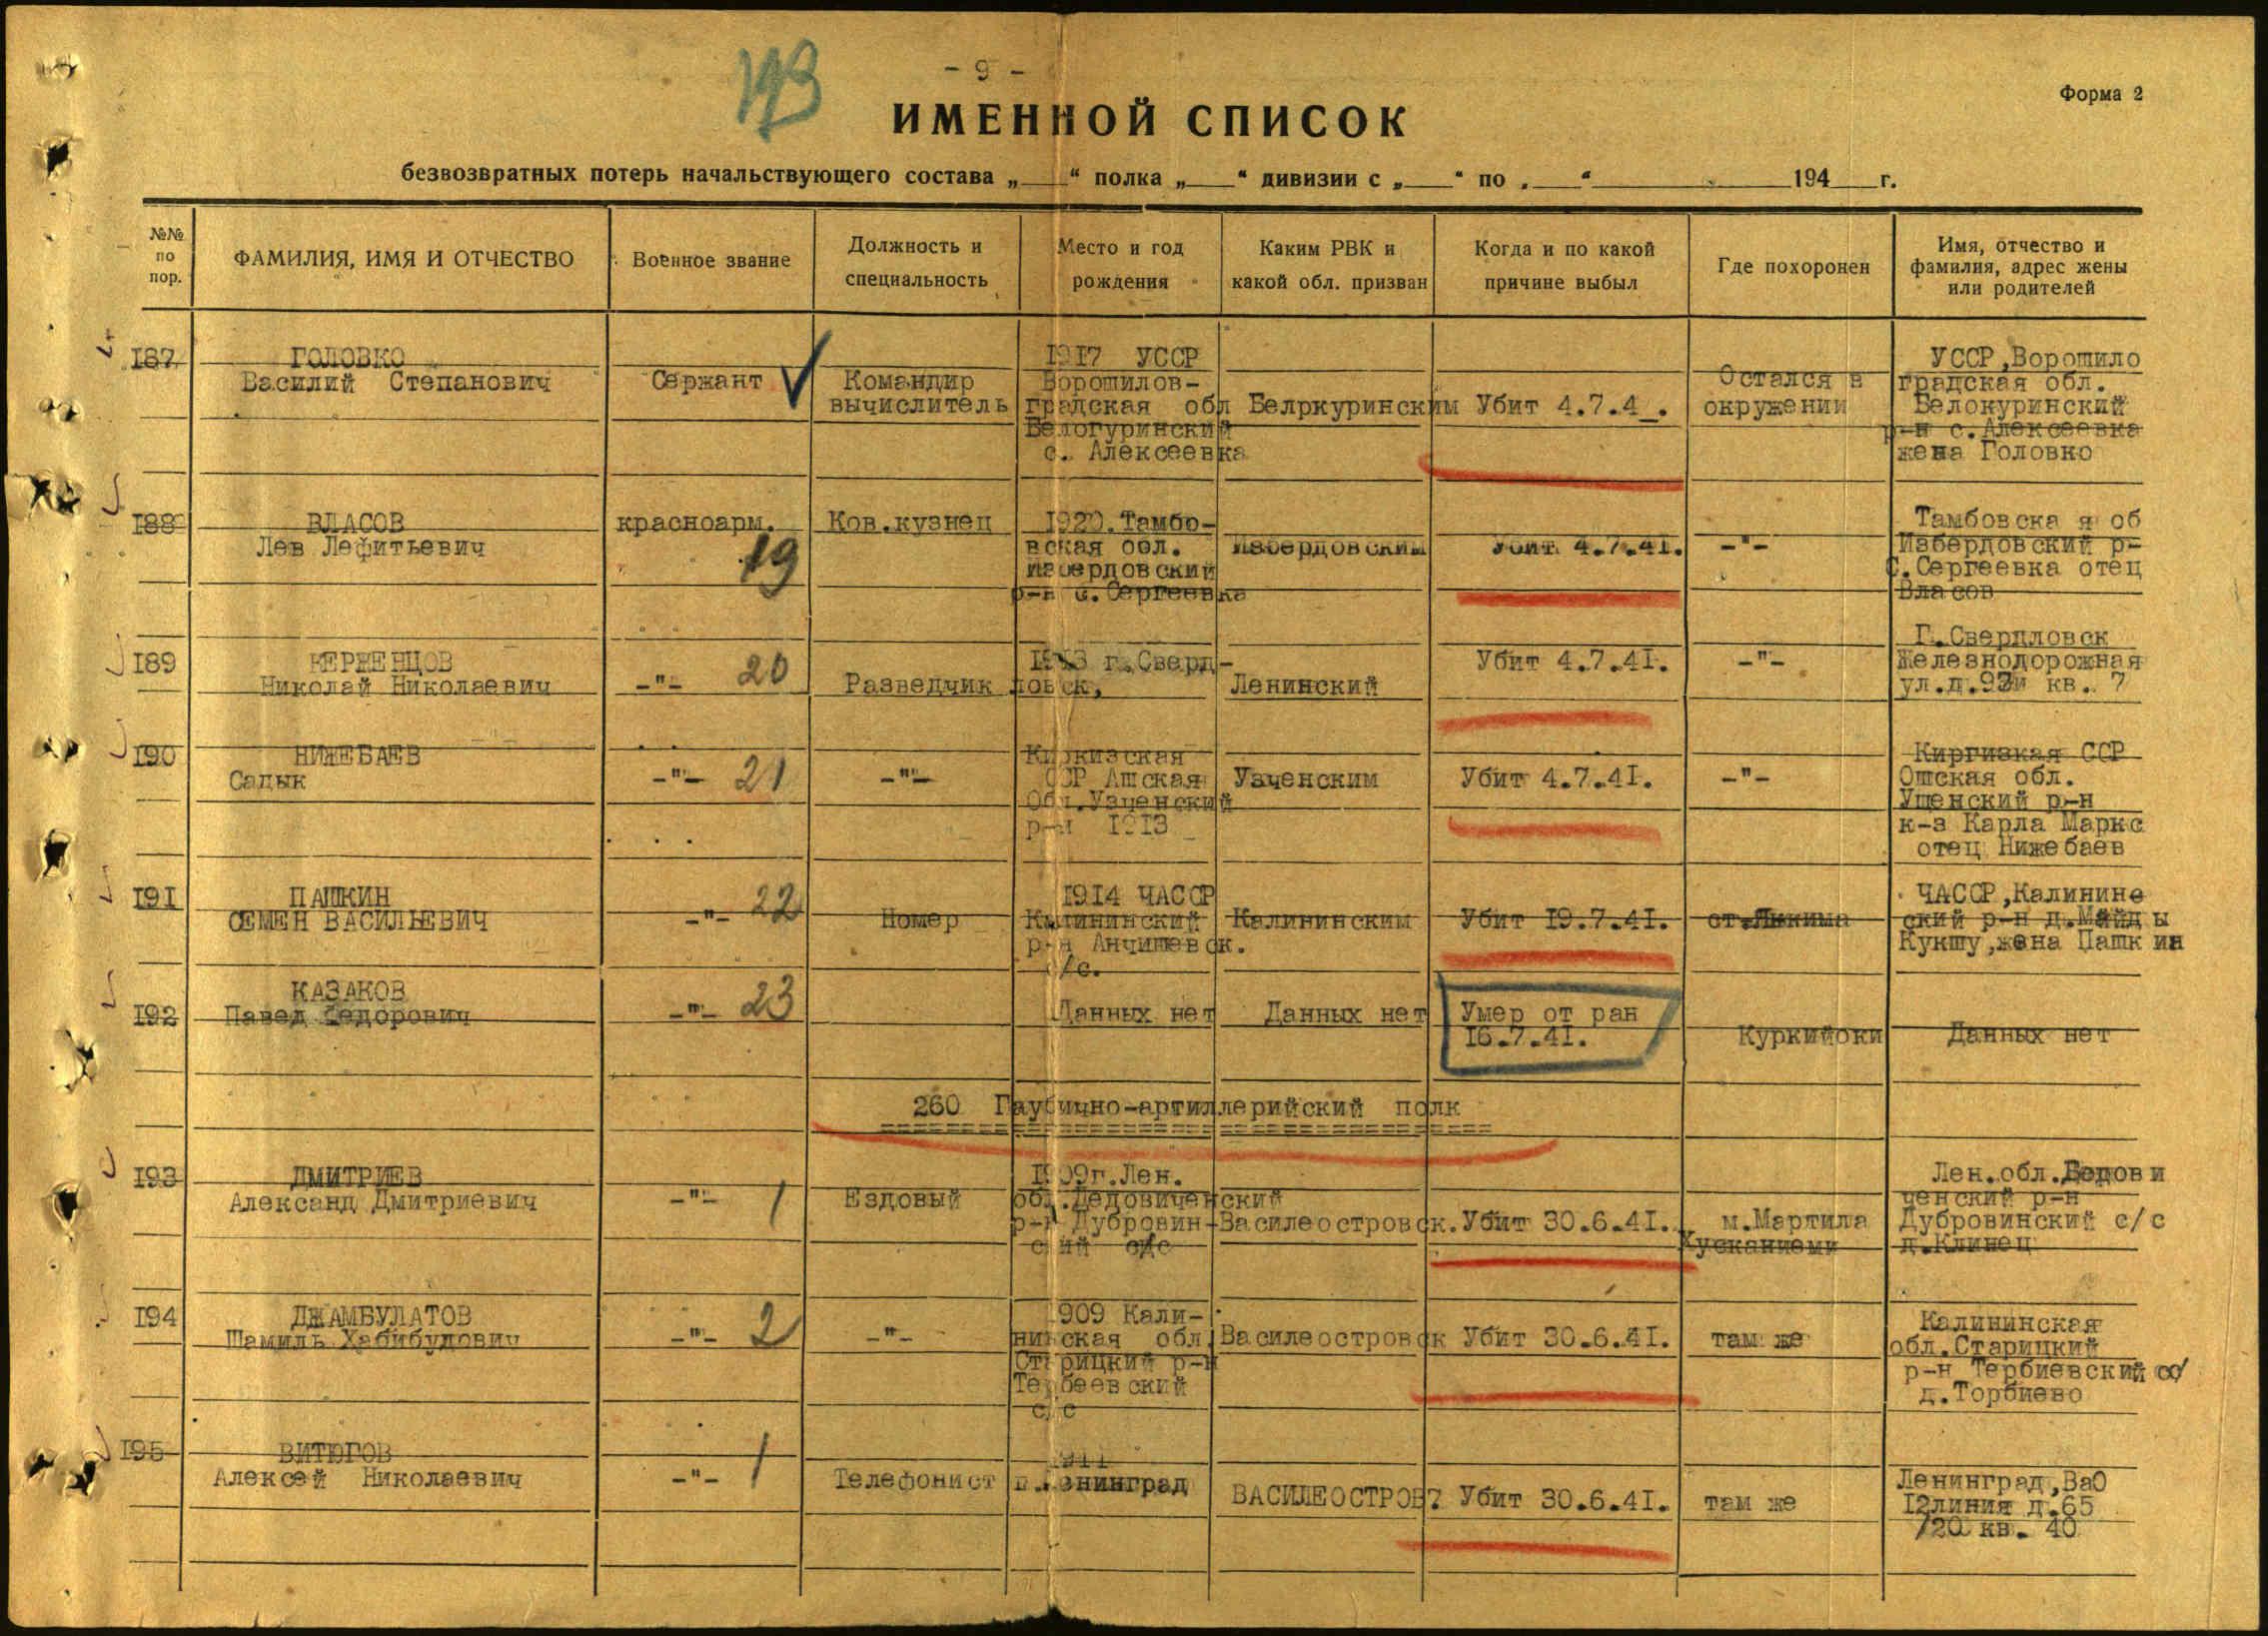 193
- 9 -
Форма 2
ИМЕННОЙ СПИСОК
безвозвратных потерь начальствующего состава „ “ полка „ “ дивизии с „ “ по „ “ 194 г.
№№ по пор.
ФАМИЛИЯ, ИМЯ И ОТЧЕСТВО
Военное звание
Должность и специальность
Место и год рождения
Каким РВК и какой обл. призван
Когда и по какой причине выбыл
Где похоронен
Имя, отчество и фамилия, адрес жены или родителей
187
ГОЛОВКО
Василий Степанович
Сержант
Командир
вычислитель
1917 УССР
Ворошилов-
градская обл
Белогуринский
с. Алексеевка
Белркуринским
Убит 4.7.4 .
Остался в
окружении
УССР,Ворошило
градская обл.
Белокуринский
р-н с.Алексеевка
жена Головко
188
ВЛАСОВ
Лев Лефитьевич
красноарм.
19
Ков.кузнец
1920.Тамбо-
вская обл.
Избердовский
р-н с.Сергеевка
Избердовским
Убит 4.7.41.
-"-
Тамбовска я об
Избердовский р-
С.Сергеевка отец
Власов
189
КЕРЖЕНЦОВ
Николай Николаевич
-"- 20
Разведчик
г.Сверд-
ловск,
Ленинский
Убит 4.7.41.
-"-
Г.Свердловск
Железнодорожная
ул.д. кв. 7
190
НИЖЕБАЕВ
Садык
-"- 21
-"-
Киркизская
ССР Ашская
Обл.Узченский
р-н 1913
Узченским
Убит 4.7.41.
-"-
Киргизкая ССР
Ошская обл.
Ушенский р-н
к-з Карла Маркс
отец Нижебаев
191
ПАШКИН
СЕМЕН ВАСИЛЬЕВИЧ
-"- 22
Номер
1914 ЧАССР
Калининский
р-н Анчишевск.
с/с.
Калининским
Убит 19.7.41.
ст.
ЧАССР,Калинине
ский р-н д.Майды
Кукшу,жена Пашкин
192
КАЗАКОВ
Павел Федорович
-"- 23
Данных нет
Данных нет
Умер от ран
16.7.41.
Куркийоки
Данных нет
260 Гаубично-артиллерийский полк
193
ДМИТРИЕВ
Александ Дмитриевич
-"- 1
Ездовый
1909г.Лен.
обл.Дедовиченский
р-н Дубровин-
ский с/с
Василеостровск.
Убит 30.6.41.
м.Мартила
Хусканиеми
Лен.обл.Дедови
ченский р-н
Дубровинский с/с
д.Клинец
194
ДЖАМБУЛАТОВ
Шамиль Хабибудович
-"- 2
-"-
1909 Кали-
нинская обл.
Старицкий р-н
Тербеевский
с/с
Василеостровск
Убит 30.6.41.
там же
Калининская
обл.Старицкий
р-н Тербиевский с/
д.Торбиево
195
ВИТЮГОВ
Алексей Николаевич
-"- 1
Телефонист
1911
г.Ленинград
ВАСИЛЕОСТРОВ?
Убит 30.6.41.
там же
Ленинград,ВаО
12линия д.65
/20 кв. 40